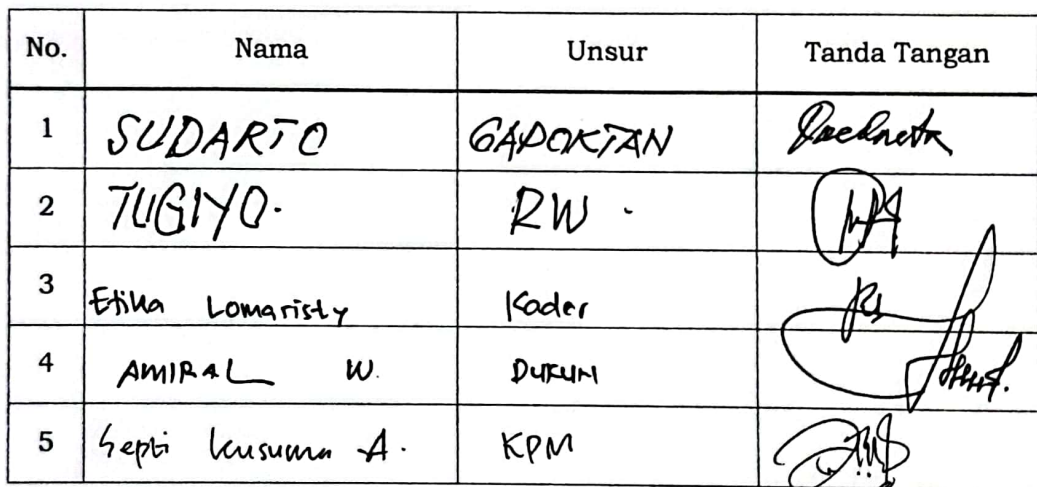 No. Nama Unsur Tanda Tangan
1 SUDARTO GAPOKTAN
2 TUGIYO. RW .
3 Etika Lomaristy Kader
4 AMIRAL W. DUKUN
5 Septi Kusuma A. KPM